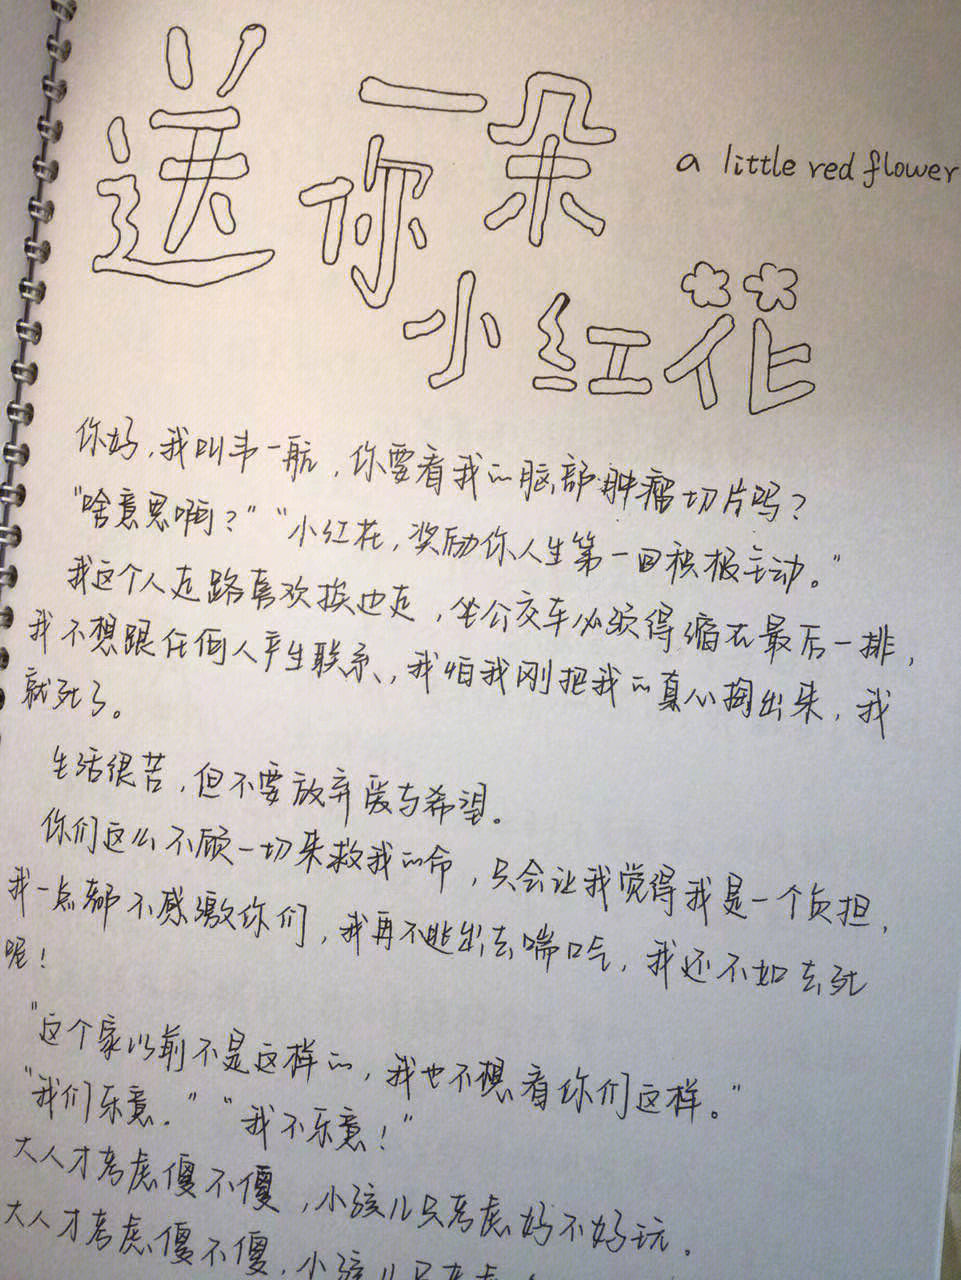 送你一朵
a little red flower
小红花
你好,我叫韦一航,你要看我的脑部肿瘤切片吗?
"啥意思啊?" "小红花,奖励你人生第一回积极主动。"
我这个人走路喜欢挨边走,坐公交车必须得缩在最后一排,
我不想跟任何人产生联系,我怕我刚把我的真心掏出来,我
就死了。
生活很苦,但不要放弃爱与希望。
你们这么不顾一切来救我的命,只会让我觉得我是一个负担,
我一点都不感激你们,我再不逃出去喘口气,我还不如去死
呢!
"这个家以前不是这样的,我也不想看你们这样。"
"我们乐意." "我不乐意!"
大人才考虑傻不傻,小孩儿只考虑好不好玩.
大人才考虑傻不傻,小孩儿只考虑